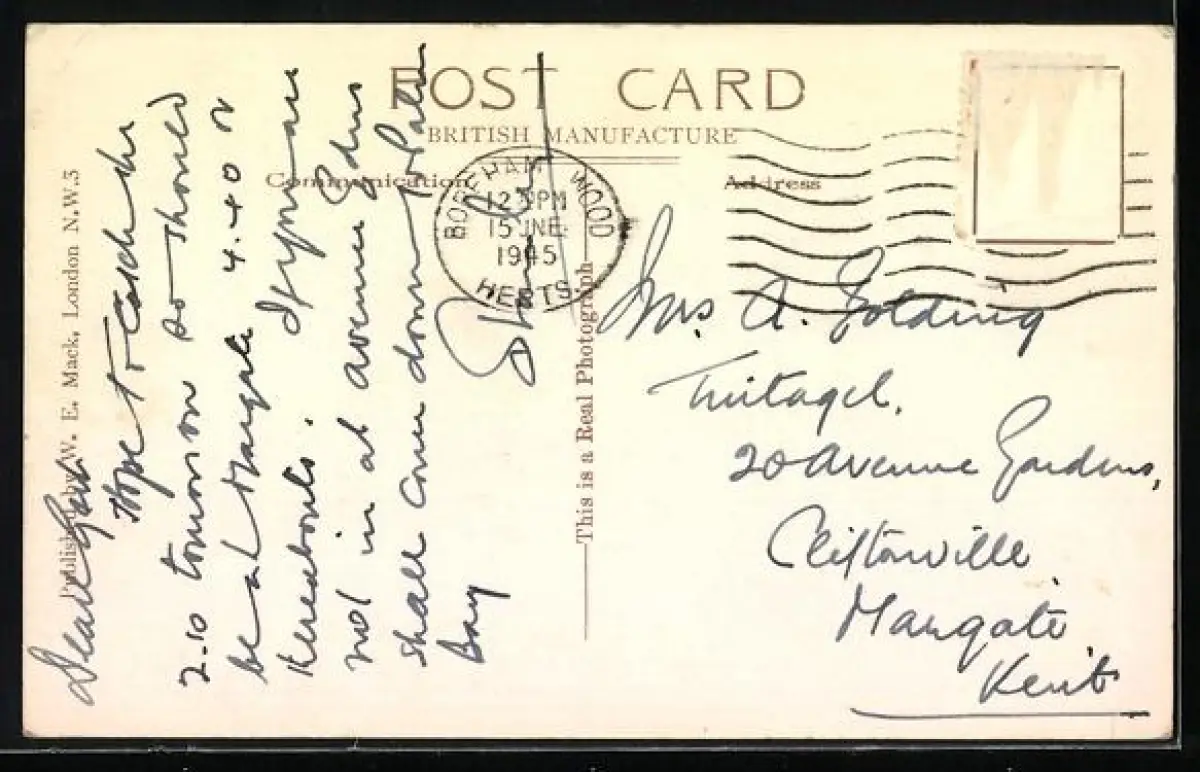 POST CARD
BRITISH MANUFACTURE
Communication
Address
BOREHAM WOOD
12 PM
15 JNE
1945
HERTS
Published by W. E. Mack, London N.W.3
This is a Real Photograph
Hope to catch the
2.10 tomorrow so should
be at Margate 4.40 or
thereabouts. If you are
not in at avenue Gdns
shall come down to Palm
Bay
Mrs. A. Golding
Tintagel,
20 Avenue Gardens,
Cliftonville
Margate
Kent